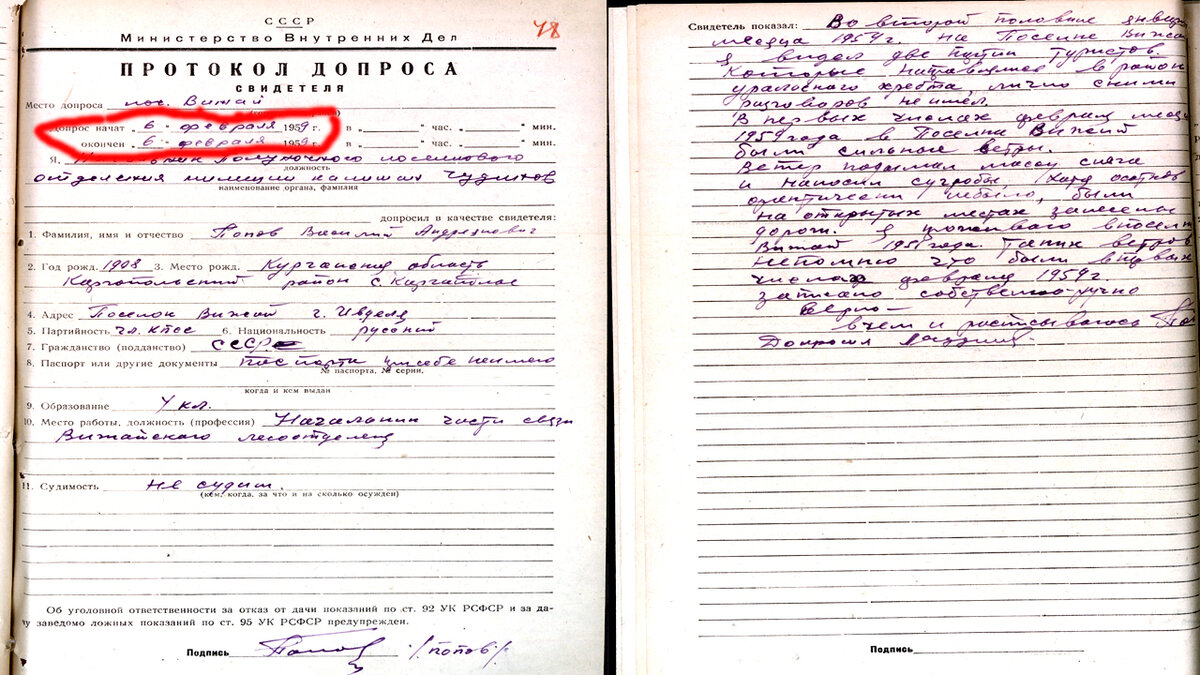 СССР
48
Министерство Внутренних Дел
ПРОТОКОЛ ДОПРОСА
СВИДЕТЕЛЯ
Место допроса пос. Вижай
Допрос начат „ 6 “ февраля 1959 г. в „ “ час. „ “ мин.
окончен „ 6 “ февраля 1959 г. в „ “ час. „ “ мин.
Я, Полуночного поселкового
должность
отделения милиции капитан Чудинов
наименование органа, фамилия
допросил в качестве свидетеля:
1. Фамилия, имя и отчество Попов Василий Андреянович
2. Год рожд. 1908 3. Место рожд. Курганская область
Каргопольский район с.
4. Адрес Поселок Вижай г. Ивделя
5. Партийность чл. КПСС 6. Национальность русский
7. Гражданство (подданство) СССР
8. Паспорт или другие документы
№ паспорта, № серии,
когда и кем выдан
9. Образование 4 кл.
10. Место работы, должность (профессия) Начальник части связи
Вижайского лесоотделения
11. Судимость Не судим.
(кем, когда, за что и на сколько осужден)
Об уголовной ответственности за отказ от дачи показаний по ст. 92 УК РСФСР и за да-
чу заведомо ложных показаний по ст. 95 УК РСФСР предупрежден.
Подпись Попов /попов/
Свидетель показал: Во второй половине января
месяца 1959г. на Поселке Вижай
я видел две группы туристов.
Которые направлялись в район
уральского хребта, лично сними
разговоров не имел.
В первых числах февраля месяца
1959 года в Поселке Вижай
были сильные ветры.
Ветер поднимал массу снега
и наносил сугробы, Хотя осатков
небыло, были
на открытых местах занесены
дороги. я проживаю впоселке
Вижай 1951 года. Таких ветров
непомню что были впервых
числах февраля 1959г
записано собственно-ручно
Верно-
вчем и расписываюсь
Допросил
Подпись